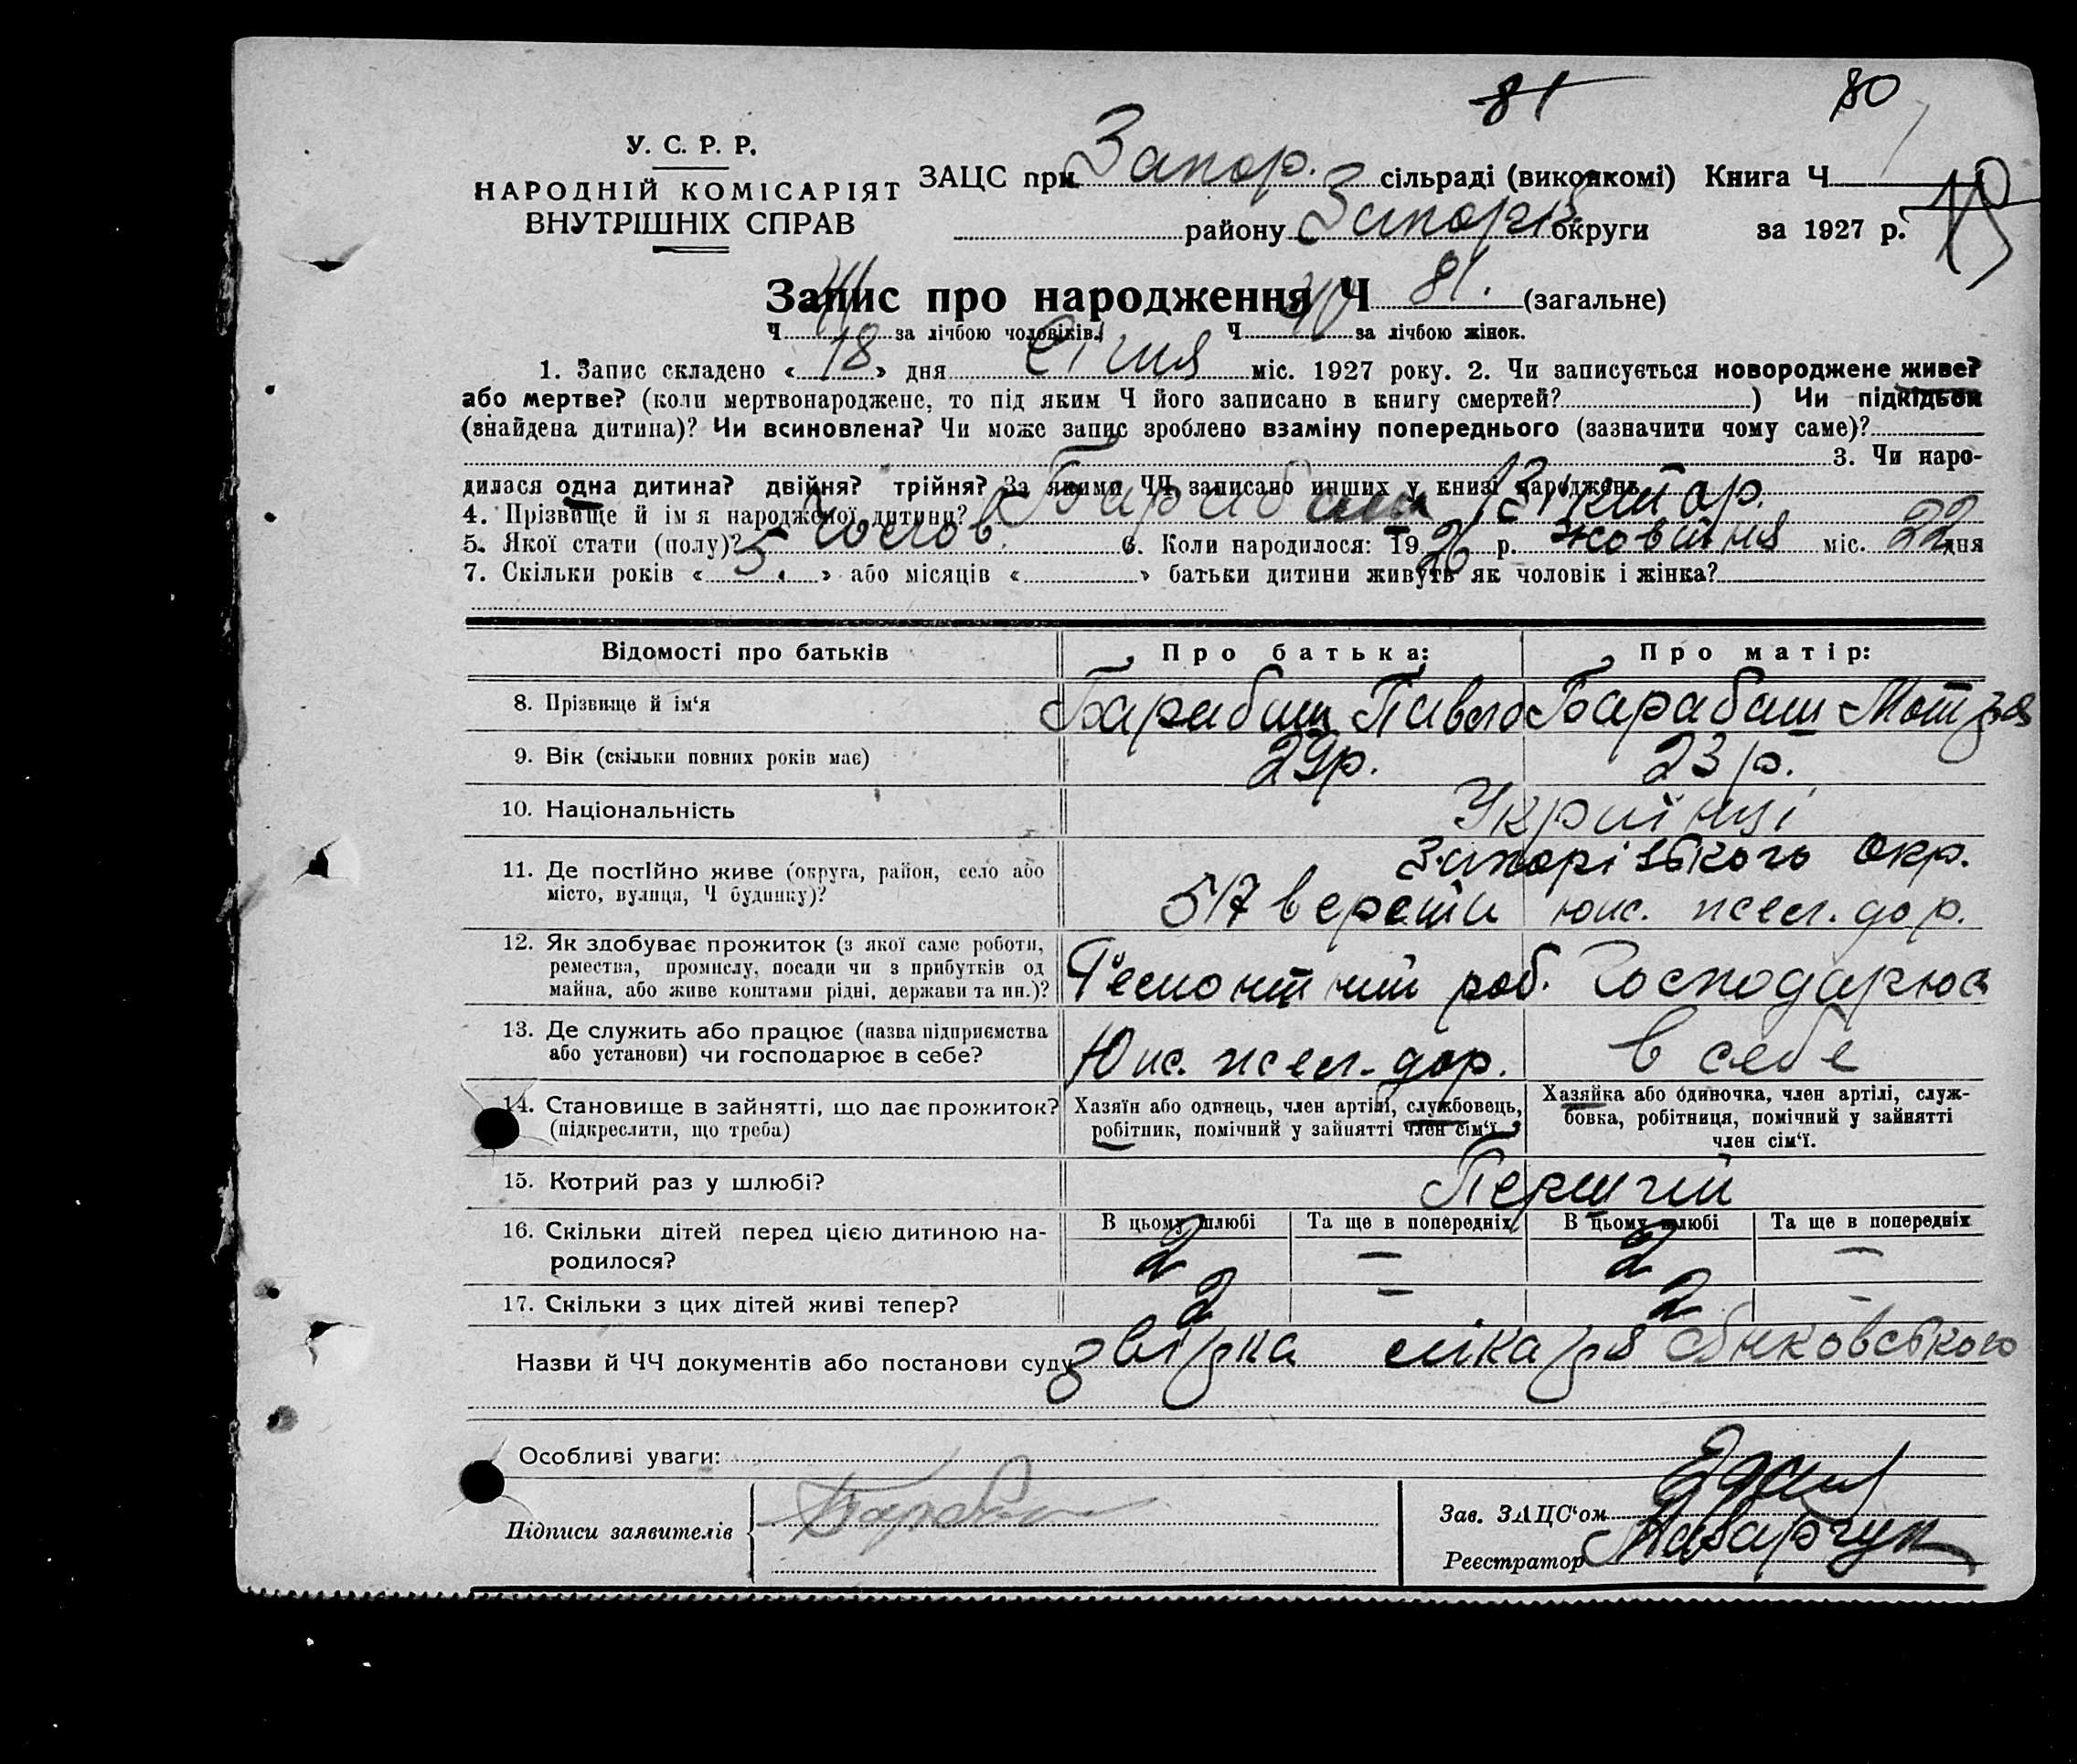 81 80
У. С. Р. Р.
НАРОДНІЙ КОМІСАРІЯТ
ВНУТРІШНІХ СПРАВ
ЗАЦС при Запор. сільраді (виконкомі) Книга Ч
району Запоріз округи за 1927 р.
Запис про народження Ч 81. (загальне)
Ч 41 за лічбою чоловіків. Ч 40 за лічбою жінок.
1. Запис складено « 18 » дня Січня міс. 1927 року. 2. Чи записується новороджене живе?
або мертве? (коли мертвонароджене, то під яким Ч його записано в книгу смертей? ) Чи підкідьок
(знайдена дитина)? Чи всиновлена? Чи може запис зроблено взаміну попереднього (зазначити чому саме)?
3. Чи наро-
дилася одна дитина? двійня? трійня? За якими ЧЧ записано инших у книзі народжень
4. Прізвище й ім я народженої дитини? Барабаш Віктор.
5. Якої стати (полу)? Чолов. 6. Коли народилося: 1926 р. жовтня міс. 22 дня
7. Скільки років « 5 » або місяців « » батьки дитини живуть як чоловік і жінка?
Відомості про батьків Про батька: Про матір:
8. Прізвище й ім‘я Барабаш Павло Барабаш Мотря
9. Вік (скільки повних років має) 29р. 23 р.
10. Національність Українці
11. Де постійно живе (округа, район, село або
місто, вулиця, Ч будинку)?
Запорізького окр.
517 верста юж. жел. дор.
12. Як здобуває прожиток (з якої саме роботи,
ремества, промислу, посади чи з прибутків од
майна, або живе коштами рідні, держави та ин.)?
Ремонтний роб. Господарює
13. Де служить або працює (назва підприємства
або установи) чи господарює в себе?
Юж. жел. дор. в себе
14. Становище в зайнятті, що дає прожиток?
(підкреслити, що треба)
Хазяїн або одинець, член артілі, службовець,
робітник, помічний у зайнятті член сім‘ї
Хазяйка або одиночка, член артілі, служ-
бовка, робітниця, помічний у зайнятті
член сім‘ї.
15. Котрий раз у шлюбі? Перший
16. Скільки дітей перед цією дитиною на-
родилося?
В цьому шлюбі Та ще в попередніх В цьому шлюбі Та ще в попередніх
2 — 2 —
17. Скільки з цих дітей живі тепер? 2 — 2 —
Назви й ЧЧ документів або постанови суду звірка лікаря
Особливі уваги:
Підписи заявителів Барабаш
Зав. ЗАЦС‘ом
Реєстратор